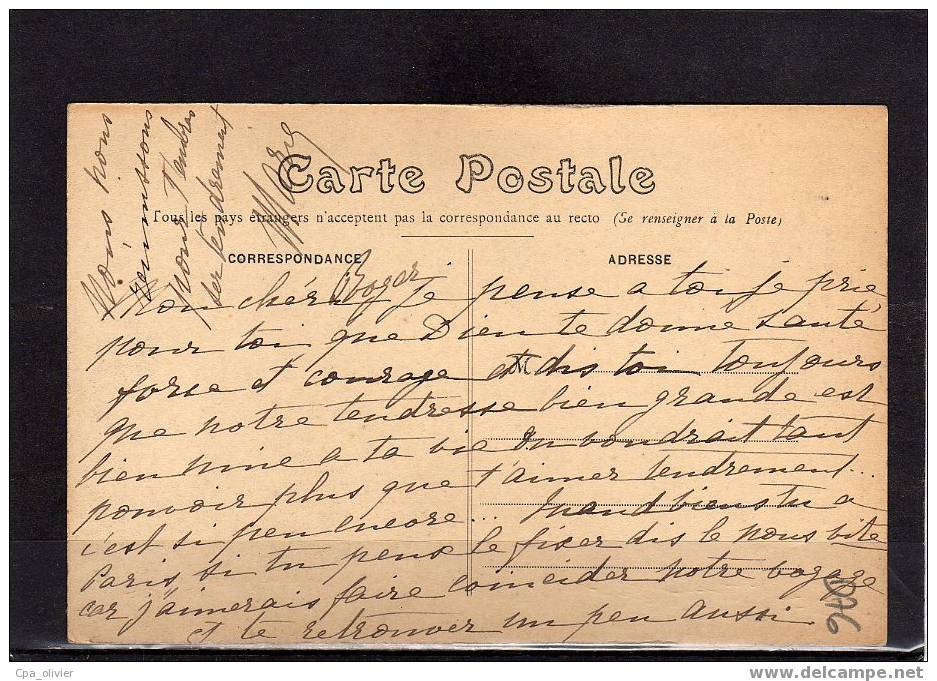 Carte Postale
Tous les pays étrangers n'acceptent pas la correspondance au recto (Se renseigner à la Poste)
CORRESPONDANCE
ADRESSE
Mon chéri Roger je pense a toi je prie
pour toi que Dieu te donne santé
force et courage et dis toi toujours
que notre tendresse bien grande est
bien unie a ta vie on voudrait tant
pouvoir plus que t'aimer tendrement...
c'est si peu encore... Quand viens tu a
Paris, si tu peux le fixer dis le nous vite
car j'aimerais faire coincider notre voyage
et te retrouver un peu aussi
Nous nous
réunissons
pour t'embras
ser tendrement
Cpa_olivier
www.delcampe.net